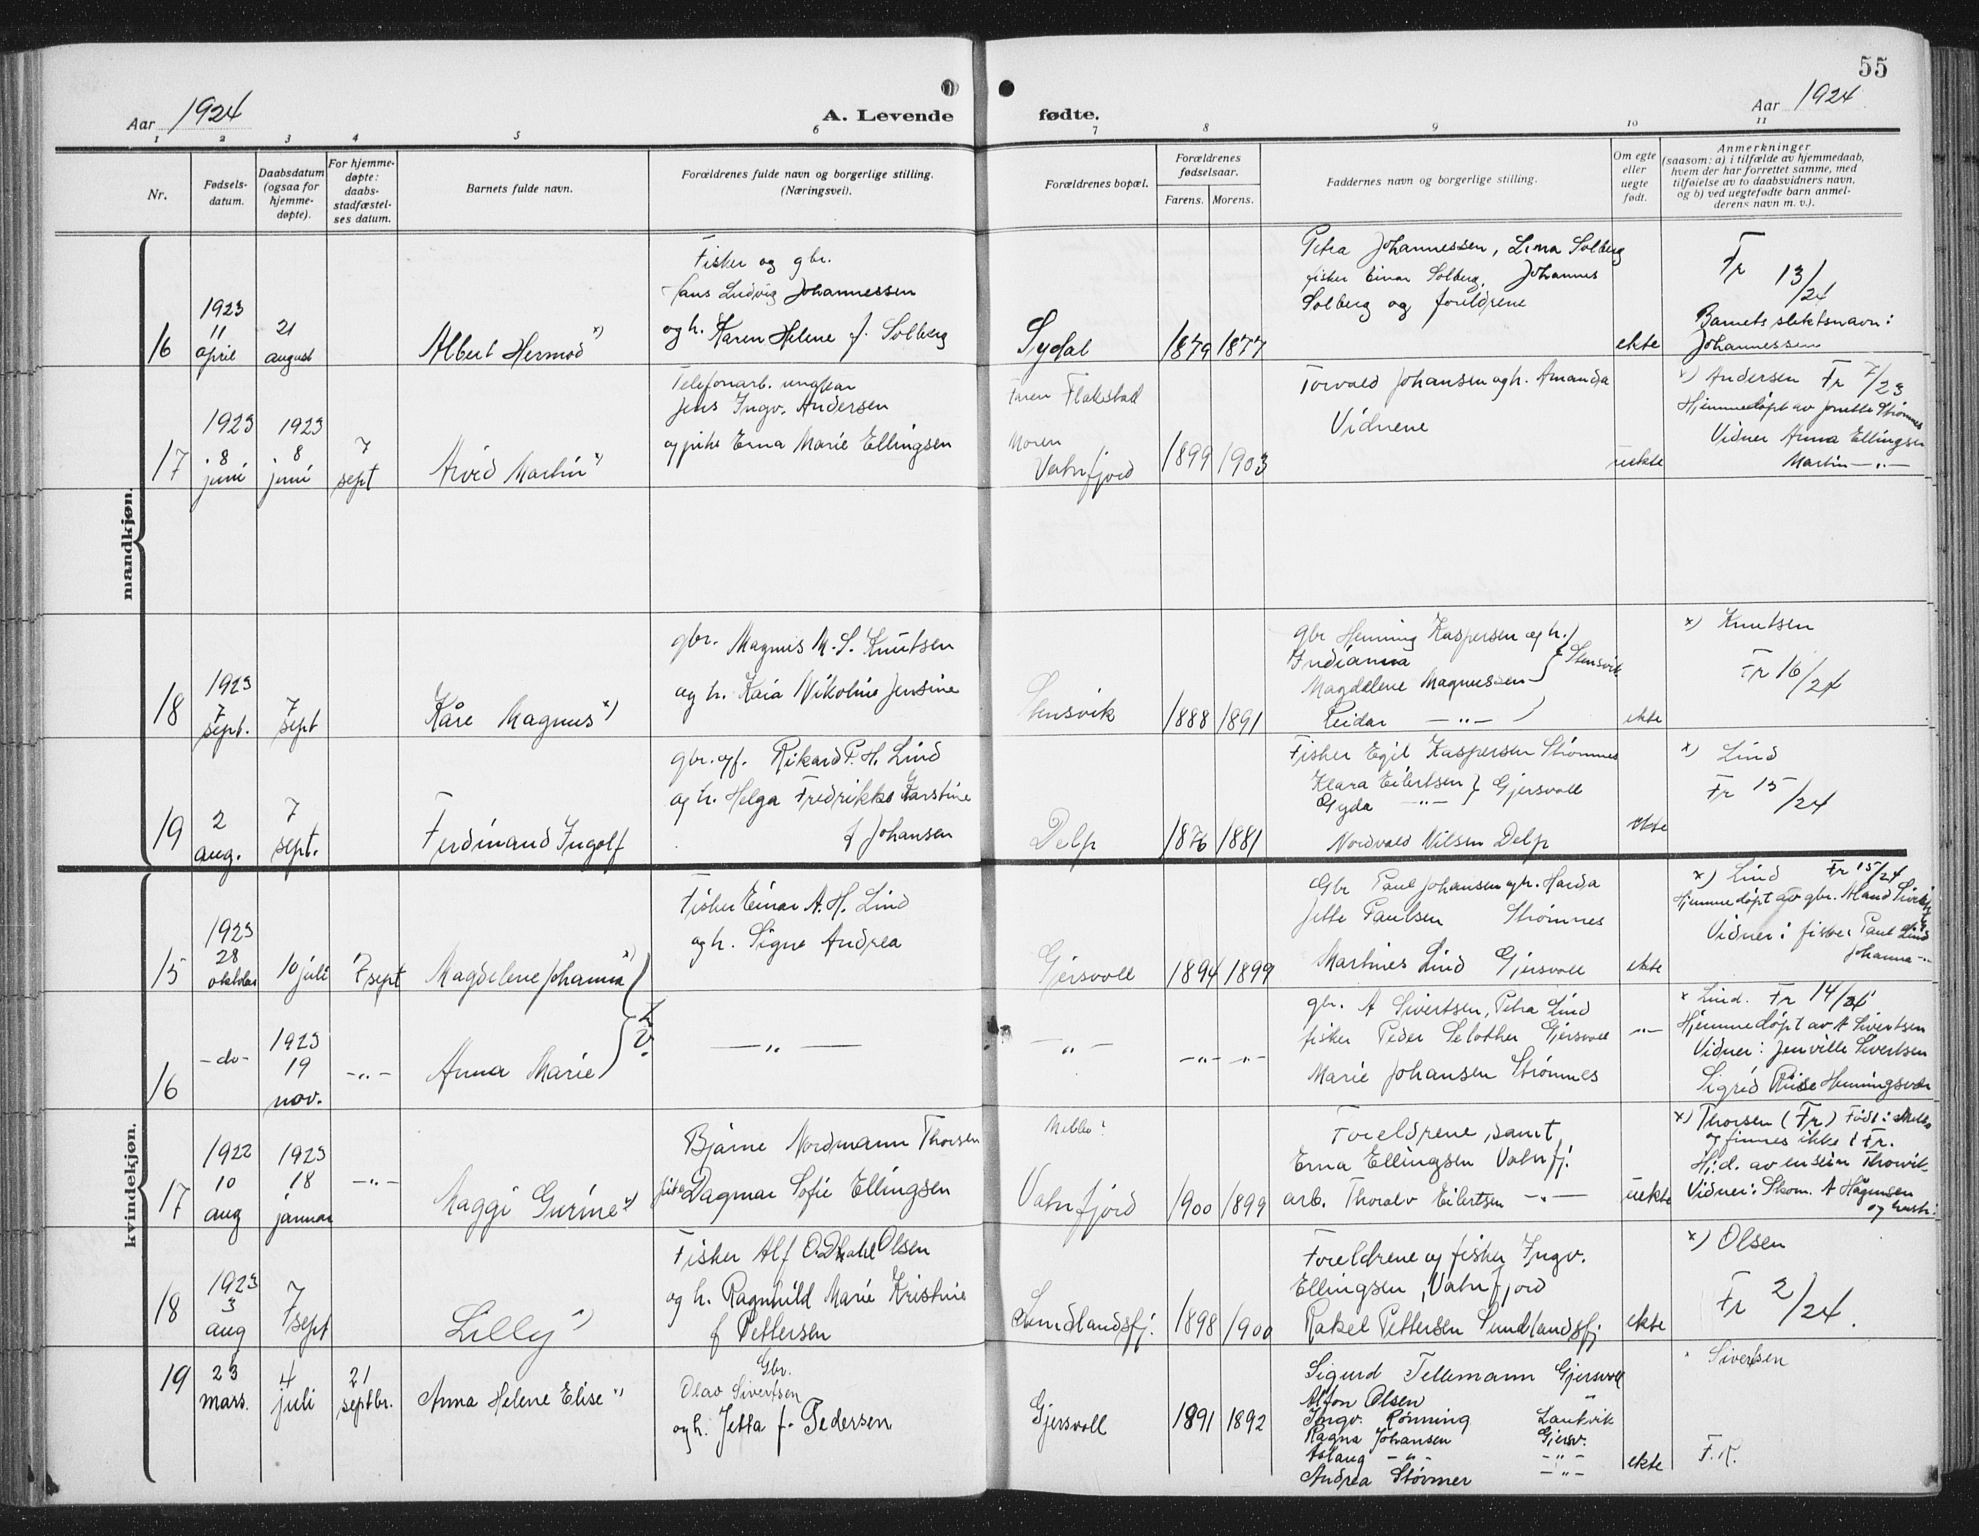 55
Aar 1924
A. Levende
fødte.
Aar 1924
1 2 3 4 5 6 7 8 9 10 11
Nr.
Fødsels-
datum.
Daabsdatum
(ogsaa for
hjemme-
døpte).
For hjemme-
døpte:
daabs-
stadfæstel-
ses datum.
Barnets fulde navn.
Forældrenes fulde navn og borgerlige stilling.
(Næringsvei).
Forældrenes bopæl.
Forældrenes
fødselsaar.
Farens. Morens.
Faddernes navn og borgerlige stilling.
Om egte
eller
uegte
født.
Anmerkninger
(saasom: a) i tilfælde av hjemmedaab,
hvem der har forrettet samme, med
tilføielse av to daabsvidners navn,
og b) ved uegtefødte barn anmel-
derens navn m. v.).
mandkjøn.
16
1923
11
april
21
august
Albert Hermod x)
Fisker og gbr.
Hans Ludvig Johannessen
og h. Karen Helene f. Solberg
Sydal
1879 1877
Petra Johannessen, Lina Solberg
fisker Einar Solberg, Johannes
Solberg og foreldrene
ekte
Fr 13/24
Barnets slektsnavn:
Johannessen
17
1923
8
juni
1923
8
juni
7
sept
Arvid Martin x)
Telefonarb. ungkar
Jens Ingv. Andersen
og pike Erna Marie Ellingsen
Faren Flakstad
Moren
Vatnfjord
1899 1903
Torvald Johansen og h. Amanda
Vidnene
uekte
x) Andersen Fr 7/23
Hjemmedøpt av Jonette Strømnes
Vidner Anna Ellingsen
Martin -„-
18
1923
7
sept.
7
sept
Kåre Magnus x)
gbr. Magnus M. S. Knutsen
og h. Kaia Nikoline Jensine
Stensvik
1888 1891
gbr Henning Kaspersen og h.
Indianna
Magdelene Magnussen
Reidar -„-
Stensvik
ekte
x) Knutsen
Fr 16/24
19
2
aug.
7
sept.
Ferdinand Ingolf
gbr. og f. Rikard P. H. Lind
og h. Helga Fredrikke Karstine
f Johansen
Delp
1876 1881
Fisker Egil Kaspersen Strømnes
Klara Eilertsen
Gyda -„-
Gjersvoll
Nordvald Nilsen Delp
ekte
x) Lind
Fr 15/24
kvindekjøn.
15
1923
28
oktober
10 juli
7 sept
Magdelene Johanna x)
Fisker Einar A. H. Lind
og h. Signe Andrea
Gjersvoll
1894 1899
Gbr Paul Johansen og h. Harda
Jette Paulsen Strømnes
Martines Lind Gjersvoll
ekte
x) Lind Fr 15/24
Hjemmedøpt av gbr.
Vidner: fisker Paul Lind
Johanna -„-
16
-do-
1923
19
nov.
-„-
Anna Marie
-„-
-„-
-„- -„-
gbr. A Sivertsen, Petra Lind
fisker Peder Gjersvoll
Marie Johansen Strømnes
-„-
x Lind. Fr 14/24
Hjemmedøpt av A Sivertsen
Vidner: Jenville Sivertsen
Sigrid Riise Henningsvær
17
1922
10
aug
1923
18
januar
-„-
Maggi Gurine x)
Bjarne Nordmann Thorsen
pike Dagmar Sofie Ellingsen
Vatnfjord
1900 1899
Foreldrene, samt
Erna Ellingsen Vatnfj.
arb. Thoralv Eilertsen -„-
uekte
x) Thorsen (Fr) Født i
og finnes ikke i Fr.
Hj.d. av
Vidner: Skom. A Hågensen
og hustr:
18
1923
3
aug
7
sept
Lilly x)
Fisker Alf Olsen
og h. Ragnhild Marie Kristine
f Pettersen
Sundlandsfj.
1898 1900
Foreldrene og fisker Ingv.
Ellingsen, Vatnfjord
Rakel Pettersen Sundlandsfj
ekte
x) Olsen
Fr 2/24.
19
23
mars.
4
juli
21
septbr.
Anna Helene Elise x)
Gbr.
Olav Sivertsen
og h. Jetta f. Pedersen
Gjersvoll
1891 1892
Sigurd Tellemann Gjersvoll
Alfon Olsen „
Ingv. Rønning Laukvik
Ragna Johansen Gjersv.
Aslaug -„- -„-
Andrea Størmer -„-
ekte
Sivertsen
F.R.